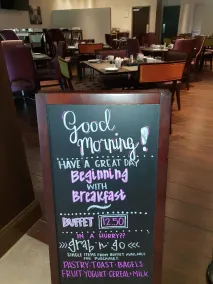 Good
Morning!
HAVE A GREAT DAY
Beginning
WITH
Breakfast
BUFFET 12.50
IN A HURRY??
>>>grab 'n' go<<<
SINGLE ITEMS FROM BUFFET AVAILABLE
FOR PURCHASE!
PASTRY·TOAST·BAGELS
FRUIT·YOGURT·CEREAL·MILK